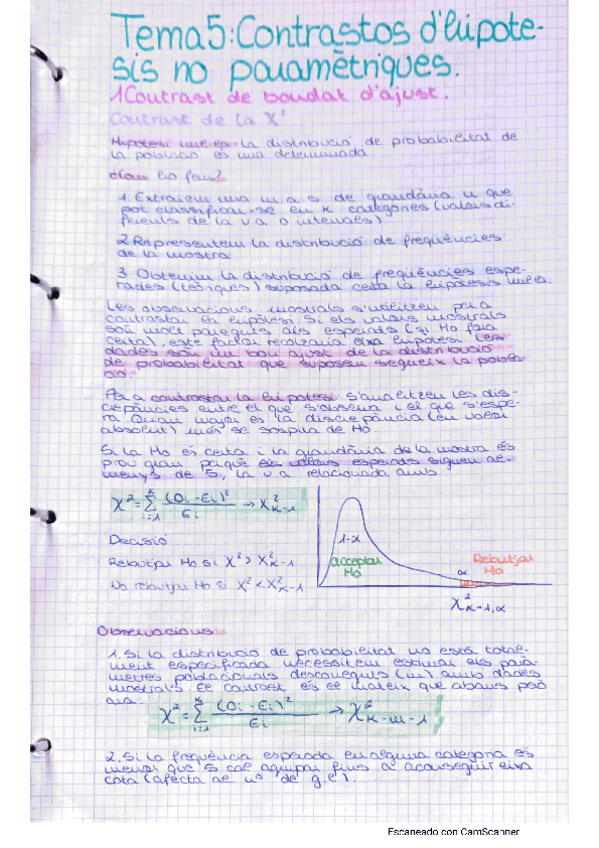 Tema 5: Contrastos d'hipote-
sis no paramètriques.
1 Contrast de bondat d'ajust.
Contrast de la χ²
Hipòtesi nul·la: la distribució de probabilitat de
la població és una determinada
Com ho fem?
1. Extraiem una m.a.s de grandària n que
pot classificar-se en K categories (valors di-
ferents de la v.a o intervals)
2. Representem la distribució de freqüències
de la mostra
3. Obtenim la distribució de freqüències espe-
rades (teòriques) suposada certa la hipòtesis nul·la.
Les observacions mostrals s'utilitzen per a
contrastar la hipòtesi. Si els valors mostrals
són molt pareguts als esperats (si Ho fora
certa), este factor recolzaria eixa hipòtesi. Les
dades són un bon ajust de la distribució
de probabilitat que suposem segueix la pobla-
ció.
Per a contrastar la hipòtesi s'analitzen les dis-
crepàncies entre el que s'observa i el que s'espe-
ra. Quan major és la discrepància (en valor
absolut) més se sospita de Ho.
Si la Ho és certa i la grandària de la mostra és
prou gran perquè els valors esperats siguen al-
menys de 5, la v.a relacionada amb
χ² = Σ (Oi - Ei)² / Ei → χ² K-1
K
i=1
Decisió
Rebutjar Ho si χ² > χ² K-1
No rebutjar Ho si χ² < χ² K-1
1-α
acceptar
Ho
α
Rebutjar
Ho
χ² K-1, α
Observacions:
1. Si la distribució de probabilitat no està total-
ment especificada necessitem estimar els parà-
metres poblacionals desconeguts (m) amb dades
mostrals. El contrast és el mateix que abans però
ara:
χ² = Σ (Oi - Ei)² / Ei → χ² K-m-1
K
i=1
2. Si la freqüència esperada en alguna categoria és
menor que 5 cal agrupar fins a aconseguir eixa
cota (afecta al nº de g.l).
Escaneado con CamScanner